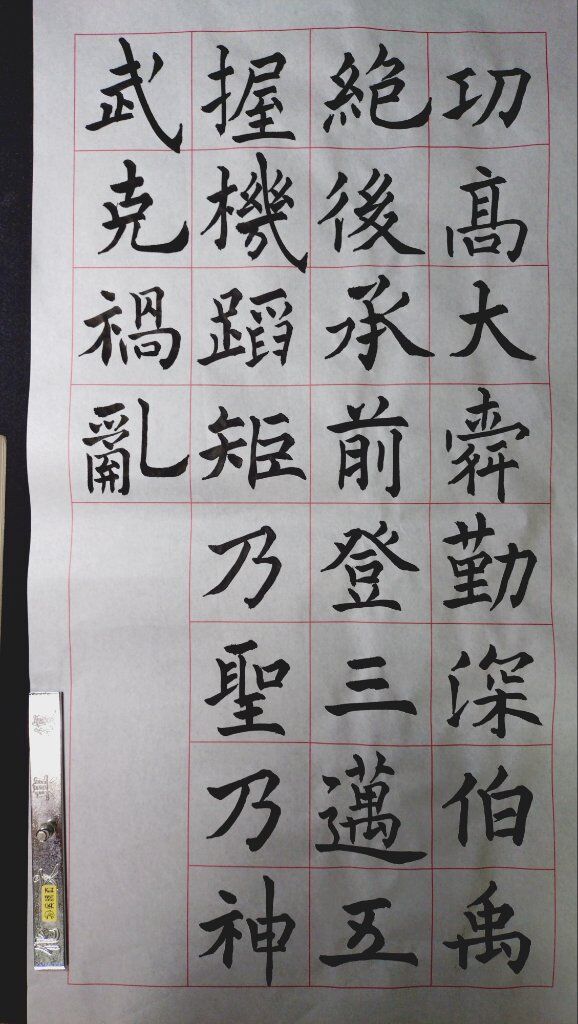 功高大舜勤深伯禹
絶後承前登三邁五
握機蹈矩乃聖乃神
武克禍亂